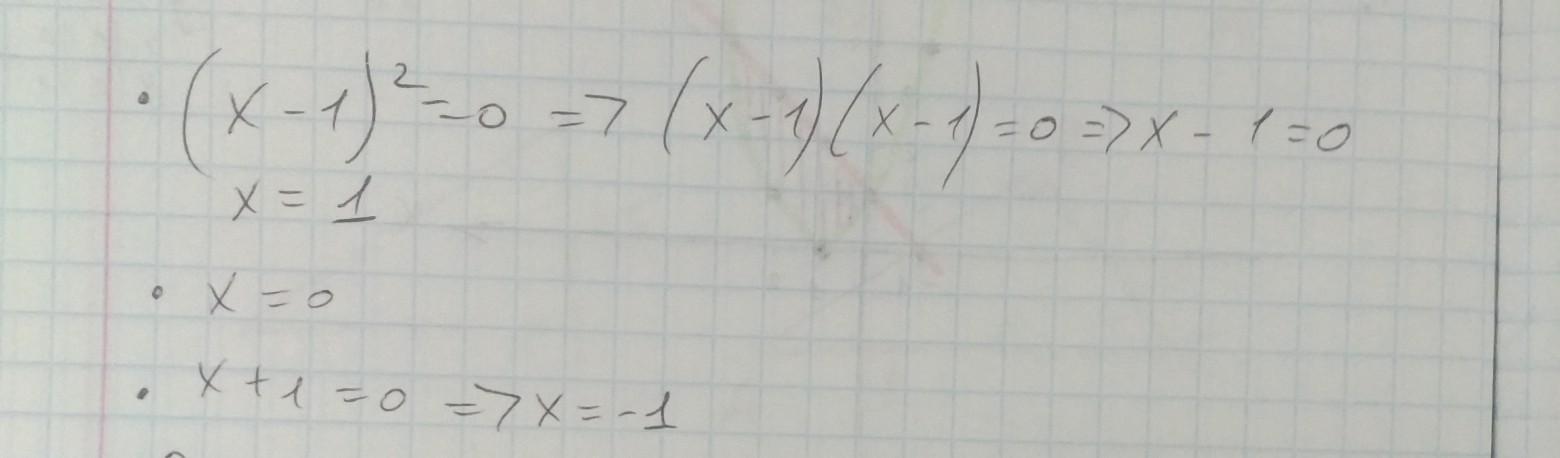 • (x-1)²=0 => (x-1)(x-1)=0 => x-1=0
x = 1
• x=0
• x+1=0 => x=-1